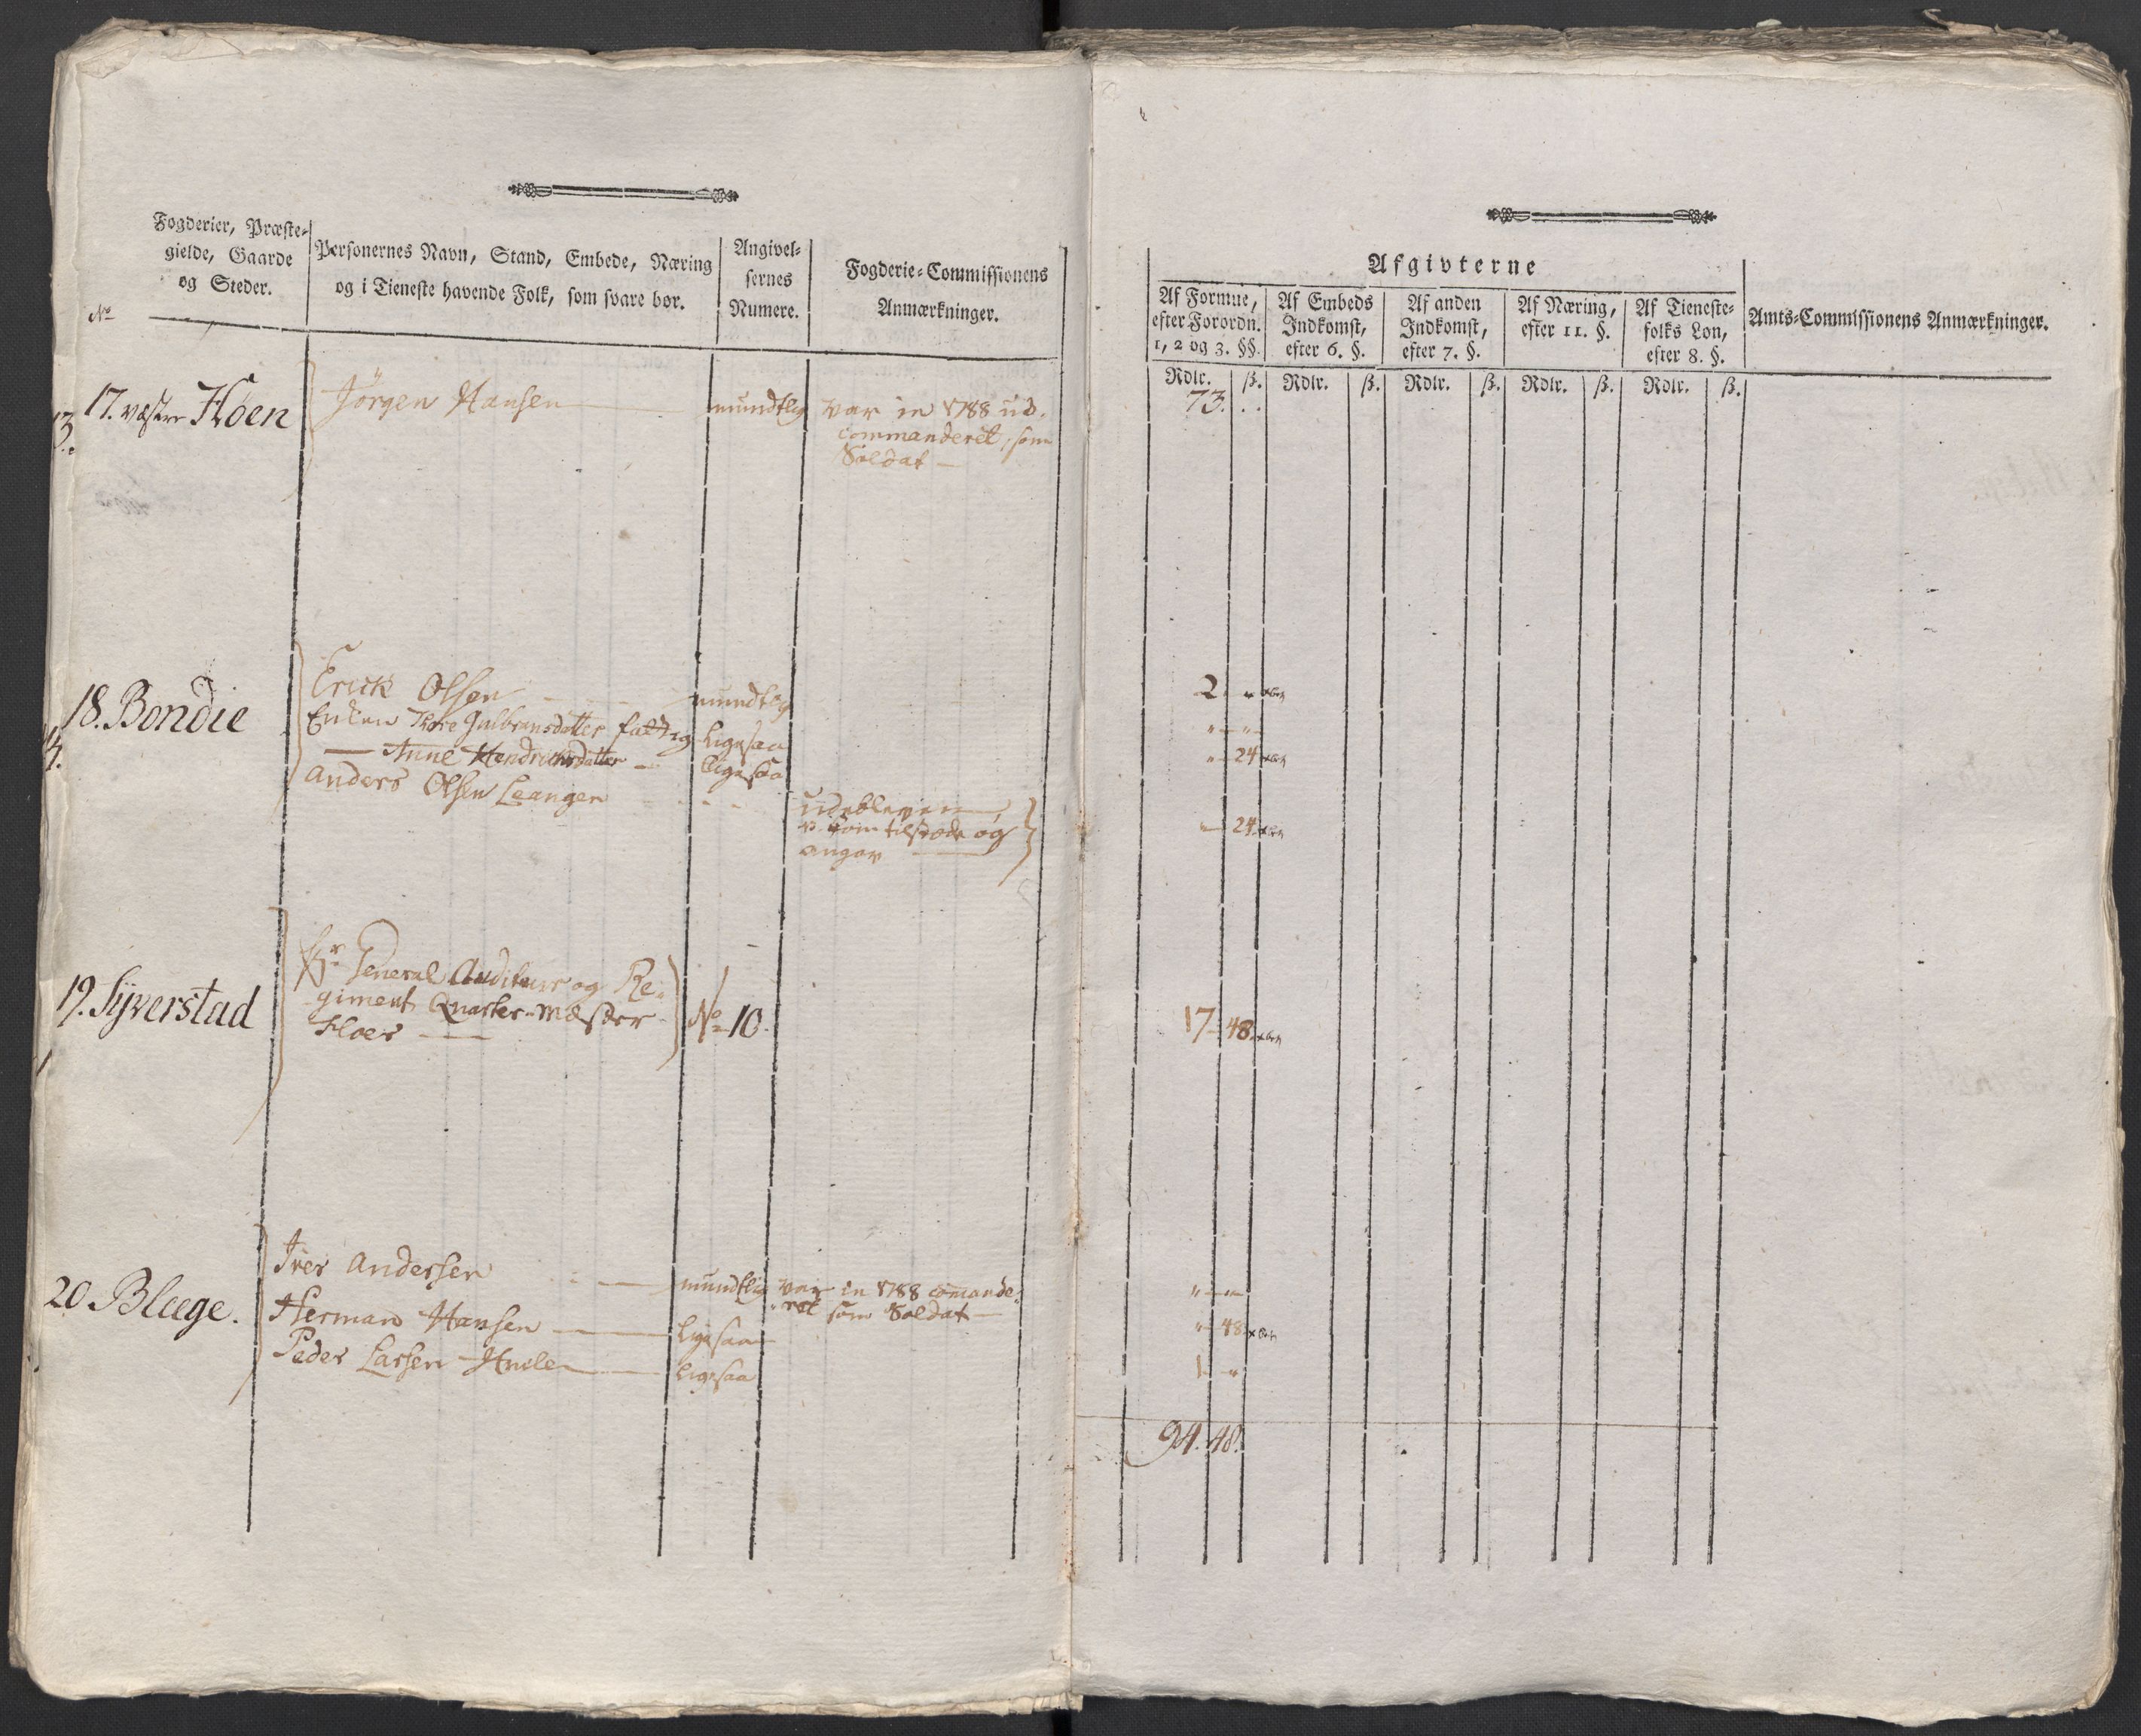 Fogderier, Præste-
gielde, Gaarde
og Steder.
No
Personernes Navn, Stand, Embede, Næring
og i Tieneste havende Folk, som svare bør.
Angivel-
sernes
Numere.
Fogderie-Commissionens
Anmærkninger.
17. væstre Höen
Jörgen Hansen
mundtlig
var in 1788 ud-
commanderet, som
Soldat
18. Bondie
Erick Olsen
mundtlig
Enken Thore Gulbransdatter fattig
Ligesaa
— Anne Hendrichsdatter —
Ligesaa
Anders Olsen Leangen
udebleven,
kom tilstæde og
angav
19. Syverstad
Hr General Auditeur og Re-
giment Quarter-Mæster
Floer
No 10.
20. Blage.
Iver Andersen
mundtlig
var in 1788 commande-
ret som Soldat
Herman Hansen
Ligesaa
Peder Larsen
Ligesaa
Afgivterne
Af Formue,
efter Forordn.
1, 2 og 3. §§.
Af Embeds
Indkomst,
efter 6. §.
Af anden
Indkomst,
efter 7. §.
Af Næring,
efter 11. §.
Af Tieneste-
folks Løn,
efter 8. §.
Amts-Commissionens Anmærkninger.
Rdlr. ß. Rdlr. ß. Rdlr. ß. Rdlr. ß. Rdlr. ß.
73. . .
2 - "
" - "
" - 24
" - 24
17 - 48
" - "
" - 48
1 - "
94. 48.